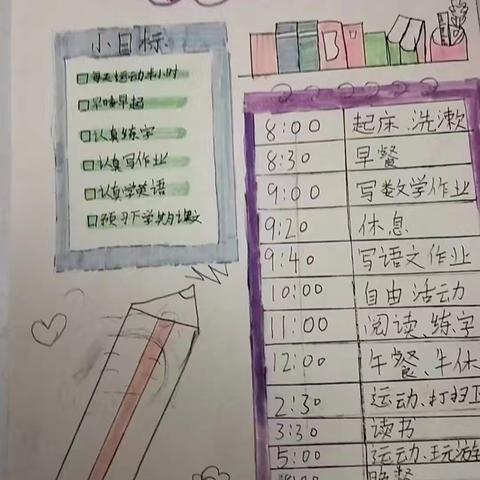 小目标
每天运动半小时
早睡早起
认真练字
认真写作业
认真学英语
预习下学期课文
8:00 起床、洗漱
8:30 早餐
9:00 写数学作业
9:20 休息
9:40 写语文作业
10:00 自由活动
11:00 阅读、练字
12:00 午餐、午休
2:30 运动、打扫
3:30 读书
5:00 运动、玩游
晚餐